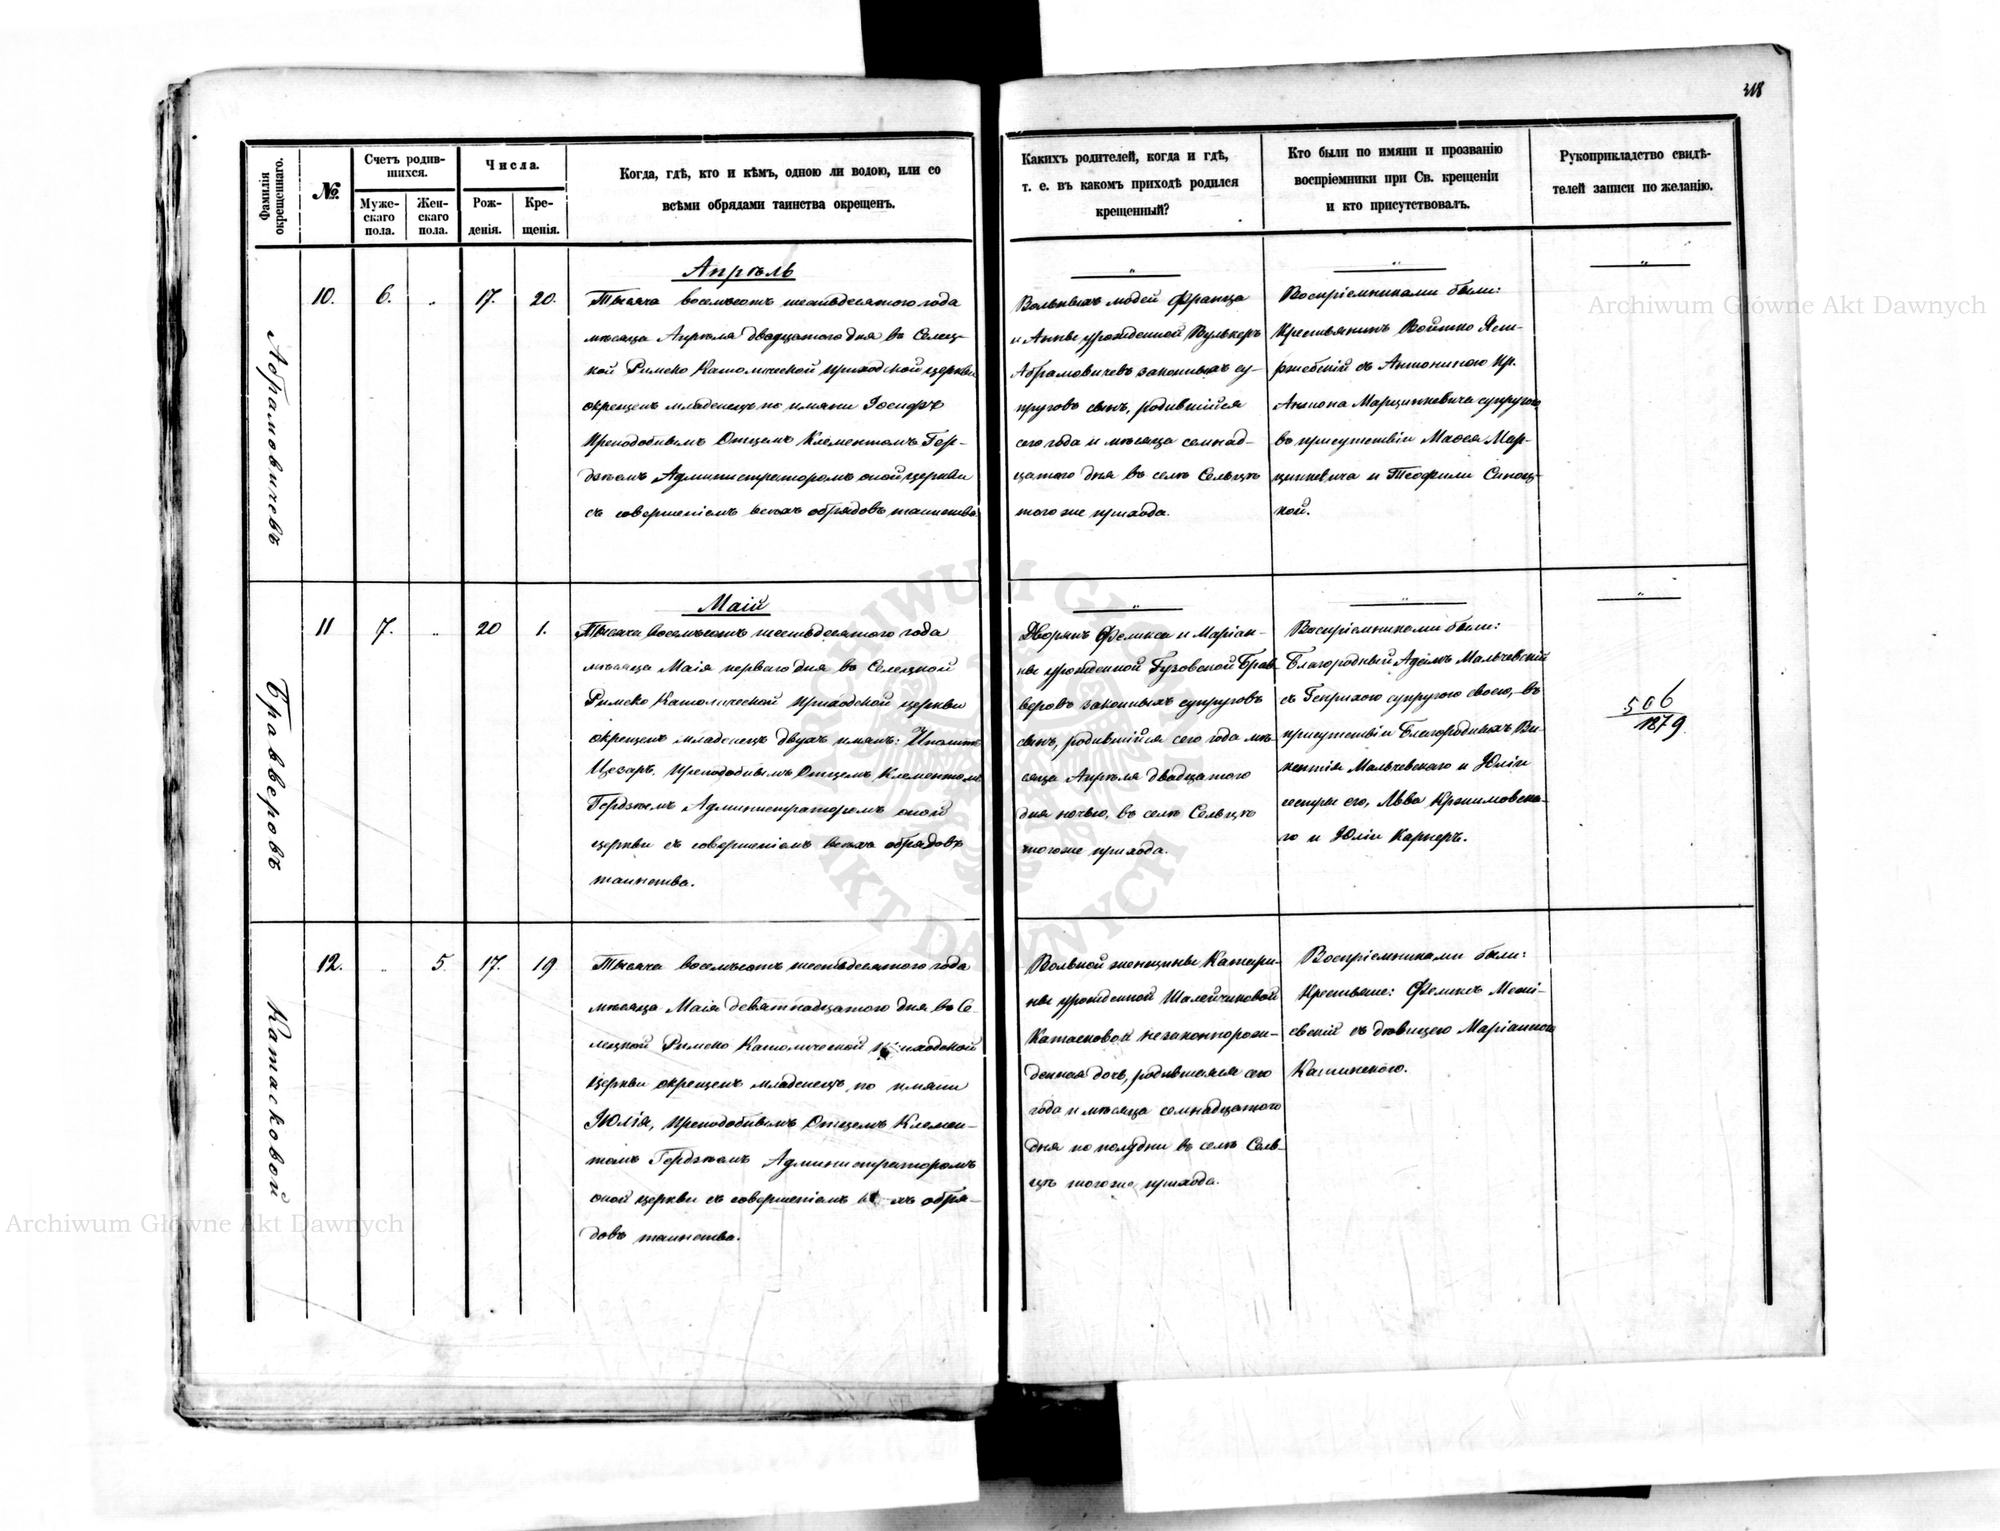 318
Фамилія окрещеннаго.
№
Счетъ родив-
шихся.
Муже-
скаго
пола.
Жен-
скаго
пола.
Числа.
Рож-
денія.
Кре-
щенія.
Когда, гдѣ, кто и кѣмъ, одною ли водою, или со
всѣми обрядами таинства окрещенъ.
Какихъ родителей, когда и гдѣ,
т. е. въ какомъ приходѣ родился
крещенный?
Кто были по имяни и прозванію
воспріемники при Св. крещеніи
и кто присутствовалъ.
Рукоприкладство свидѣ-
телей записи по желанію.
Абрамовичевъ
10.
6.
17.
20.
Апрѣль
Тысяча восемьсотъ шестьдесятого года
мѣсяца Апрѣля двадцатого дня въ Селец-
кой Римско Католической приходской церкви
окрещенъ младенецъ по имяни Іосифъ
Преподобнымъ Отцемъ Клементомъ Гер-
Администраторомъ оной церкви
съ совершеніемъ всѣхъ обрядовъ таинства.
Вольныхъ людей Франца
и Анны урожденной Вулькеръ
Абрамовичевъ законныхъ су-
пруговъ сынъ, родившійся
сего года и мѣсяца семнад-
цатого дня въ селѣ Сельцѣ
того же прихода.
Воспріемниками были:
Крестьянинъ Войтко Яст-
ржебскій съ Антониною Кр.
Антона Марцинкевича супругою
въ присутствіи Матея Мар-
цинкевича и Теофили
кой.
Бравверовъ
11
7.
20
1.
Маій
Тысяча восемьсотъ шестьдесятого года
мѣсяца Маія перваго дня въ Селецкой
Римско Католической приходской церкви
окрещенъ младенецъ двухъ имянъ: Иполитъ
Цезаръ, Преподобнымъ Отцемъ Клементомъ
Администраторомъ оной
церкви съ совершеніемъ всѣхъ обрядовъ
таинства.
Дворянъ Феликса и Маріан-
ны урожденной Гузовской Брав-
веровъ законныхъ супруговъ
сынъ, родившійся сего года мѣ-
сяца Апрѣля двадцатого
дня ночью, въ селѣ Сельцѣ
того же прихода.
Воспріемниками были:
Благородный Адамъ Мальчевскій
съ Генрикою супругою своею, въ
присутствіи Благородныхъ Ви-
кентія Мальчевскаго и Юліи
сестры его, Льва Кракимовска-
го и Юліи Карнеръ.
506
1879
Катасковой
12.
5.
17.
19
Тысяча восемьсотъ шестьдесятого года
мѣсяца Маія девятнадцатого дня въ Се-
лецкой Римско Католической приходской
церкви окрещенъ младенецъ, по имяни
Юлія, Преподобнымъ Отцемъ Клемен-
томъ Администраторомъ
оной церкви съ совершеніемъ всѣхъ обря-
довъ таинства.
Вольной женщины Катери-
ны урожденной Шалейчиковой
Катасковой незаконнорож-
денная дочь, родившаяся сего
года и мѣсяца семнадцатого
дня по полудни въ селѣ Сель-
цѣ того же прихода.
Воспріемниками были:
Крестьяне: Феликсъ
евскій съ дѣвицею Маріанною
Кашинскою.
Archiwum Główne Akt Dawnych
Archiwum Główne Akt Dawnych
ARCHIWUM GŁÓWNE
AKT DAWNYCH